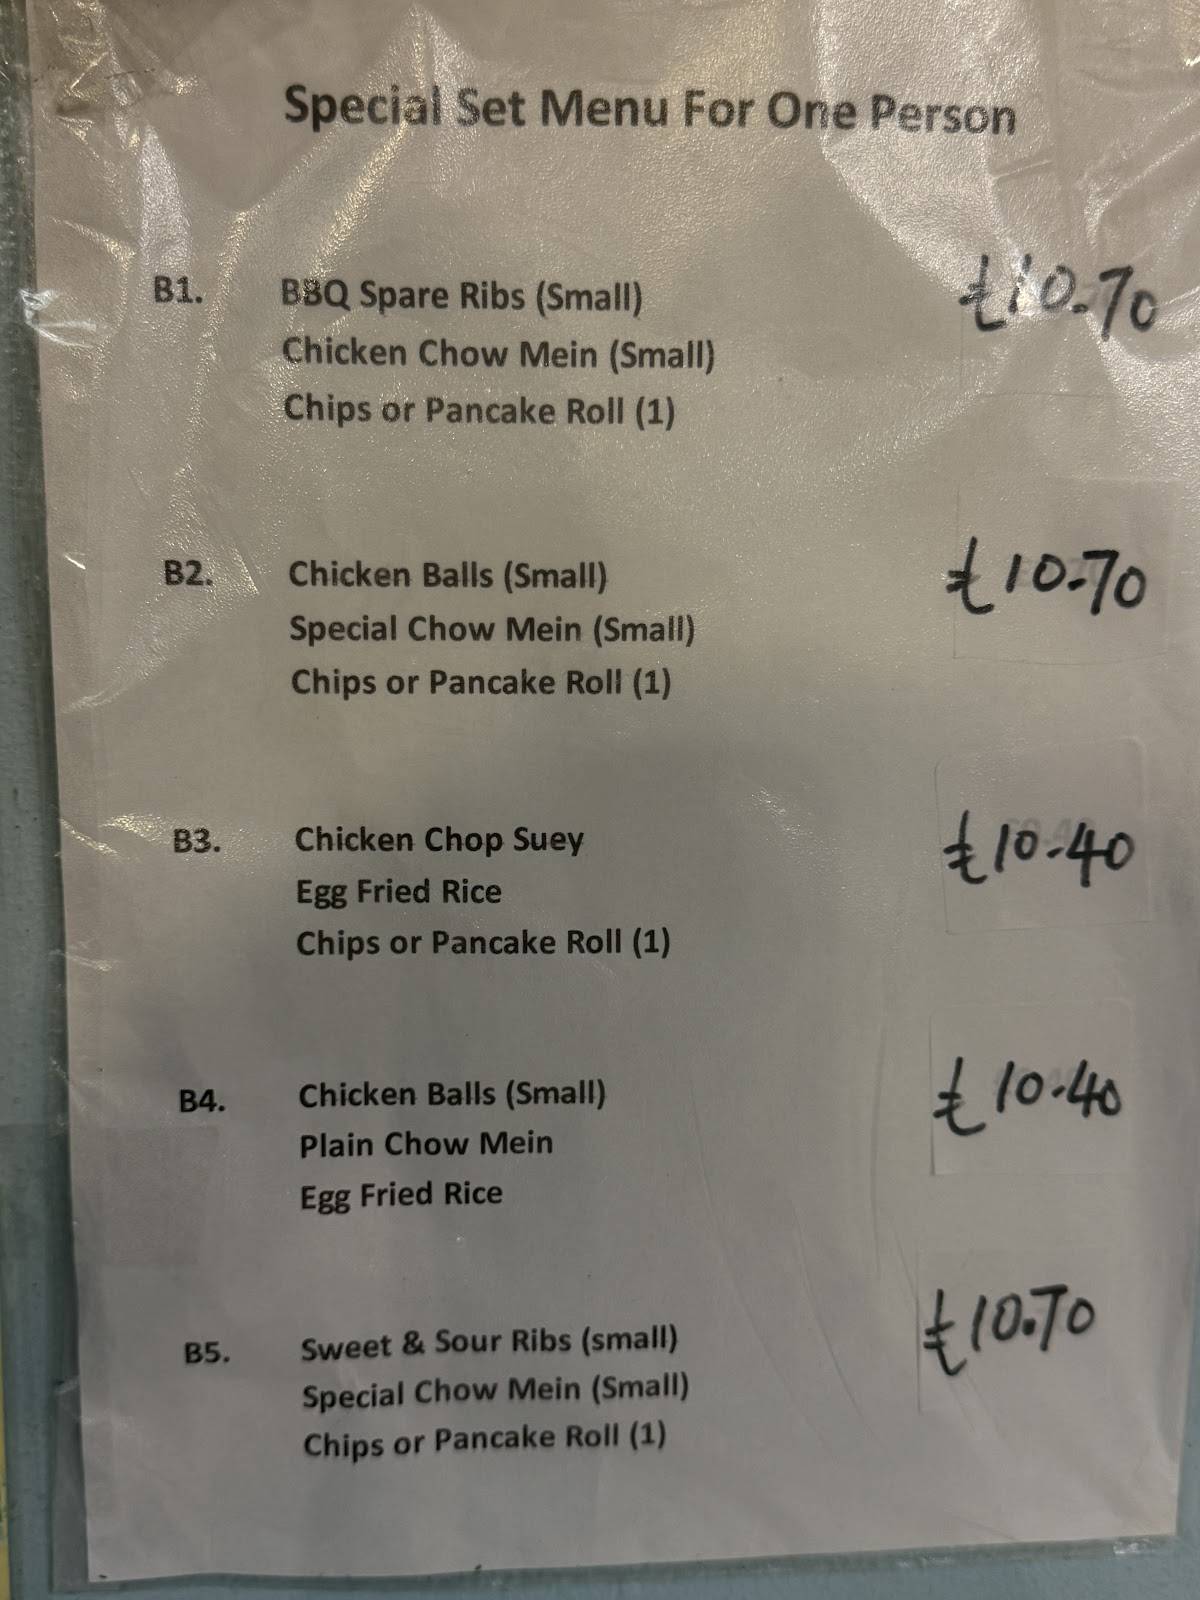 Special Set Menu For One Person
B1. BBQ Spare Ribs (Small) £10.70
Chicken Chow Mein (Small)
Chips or Pancake Roll (1)
B2. Chicken Balls (Small) £10.70
Special Chow Mein (Small)
Chips or Pancake Roll (1)
B3. Chicken Chop Suey £10.40
Egg Fried Rice
Chips or Pancake Roll (1)
B4. Chicken Balls (Small) £10.40
Plain Chow Mein
Egg Fried Rice
B5. Sweet & Sour Ribs (small) £10.70
Special Chow Mein (Small)
Chips or Pancake Roll (1)